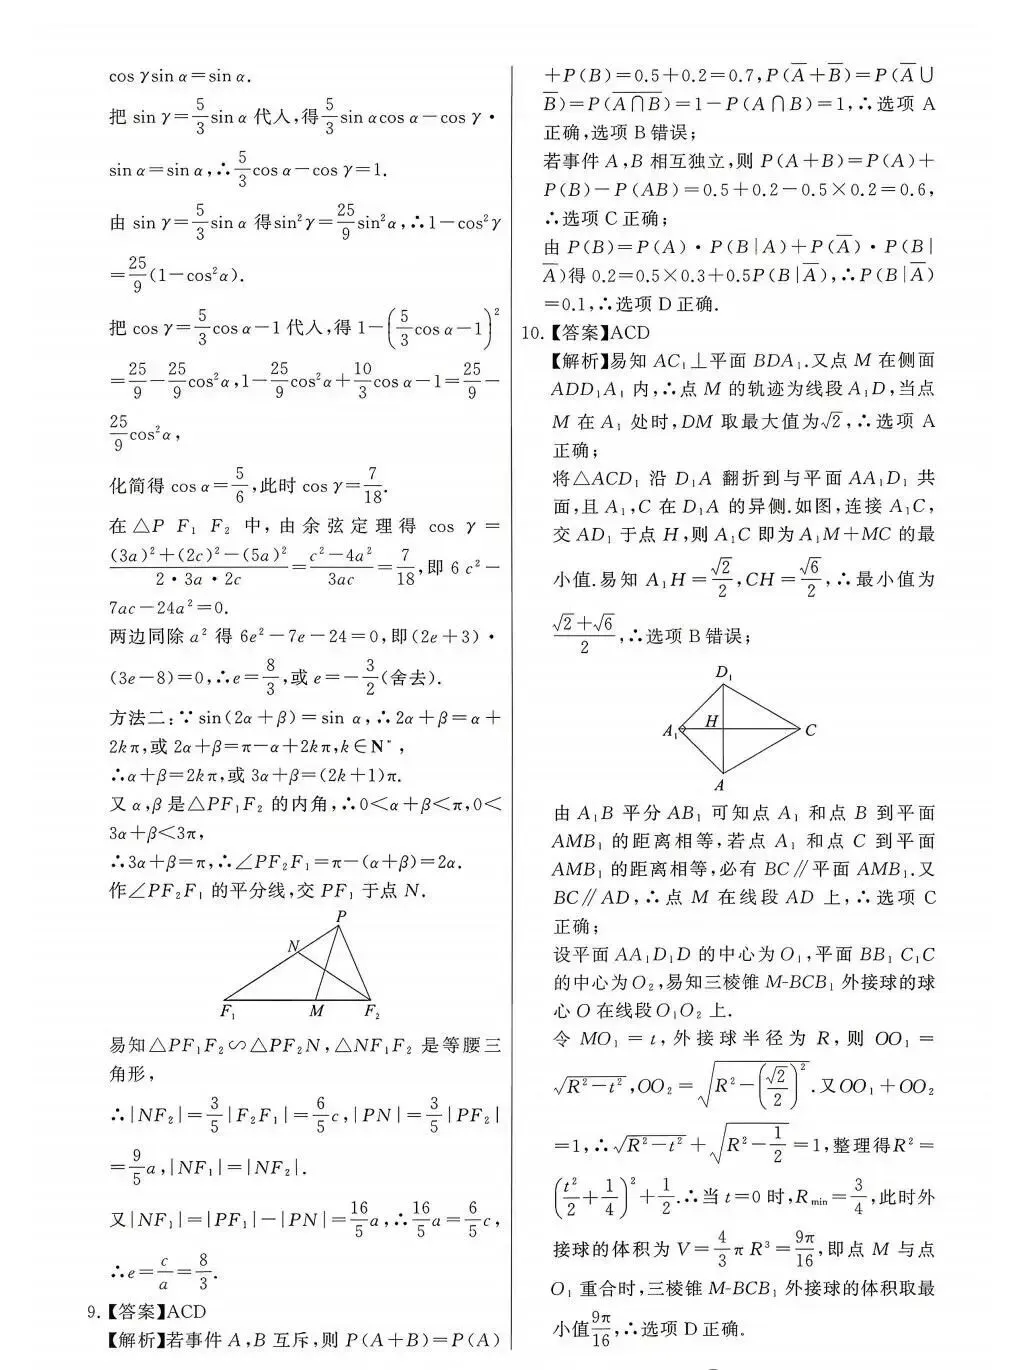 cos γsin α=sin α.
把 sin γ=5/3 sin α 代人,得5/3 sin αcos α-cos γ·
sin α=sin α,∴5/3 cos α-cos γ=1.
由 sin γ=5/3 sin α 得sin²γ=25/9 sin²α,∴1-cos²γ
=25/9(1-cos²α).
把 cos γ=5/3 cos α-1代人,得 1-(5/3 cos α-1)²
=25/9-25/9 cos²α,1-25/9 cos²α+10/3 cos α-1=25/9-
25/9 cos²α,
化简得 cos α=5/6,此时 cos γ=7/18.
在 △P F₁ F₂ 中,由余弦定理得 cos γ=
((3a)²+(2c)²-(5a)²)/(2·3a·2c)=(c²-4a²)/(3ac)=7/18,即 6c²-
7ac-24a²=0.
两边同除 a² 得 6e²-7e-24=0,即(2e+3)·
(3e-8)=0,∴e=8/3,或 e=-3/2(舍去).
方法二:∵sin(2α+β)=sin α,∴2α+β=α+
2kπ,或 2α+β=π-α+2kπ,k∈N*,
∴α+β=2kπ,或 3α+β=(2k+1)π.
又 α,β 是△PF₁F₂ 的内角,∴0<α+β<π,0<
3α+β<3π,
∴3α+β=π,∴∠PF₂F₁=π-(α+β)=2α.
作∠PF₂F₁ 的平分线,交 PF₁ 于点 N.
P
N
F₁ M F₂
易知△PF₁F₂∽△PF₂N,△NF₁F₂ 是等腰三
角形,
∴|NF₂|=3/5|F₂F₁|=6/5 c,|PN|=3/5|PF₂|
=9/5 a,|NF₁|=|NF₂|.
又|NF₁|=|PF₁|-|PN|=16/5 a,∴16/5 a=6/5 c,
∴e=c/a=8/3.
9.【答案】ACD
【解析】若事件 A,B 互斥,则 P(A+B)=P(A)
+P(B)=0.5+0.2=0.7,P(A̅+B̅)=P(A̅∪
B̅)=P(A̅∩̅B̅)=1-P(A∩B)=1,∴选项 A
正确,选项 B错误;
若事件 A,B 相互独立,则 P(A+B)=P(A)+
P(B)-P(AB)=0.5+0.2-0.5×0.2=0.6,
∴选项 C正确;
由 P(B)=P(A)·P(B|A)+P(A̅)·P(B|
A̅)得 0.2=0.5×0.3+0.5P(B|A̅),∴P(B|A̅)
=0.1,∴选项 D正确.
10.【答案】ACD
【解析】易知 AC₁⊥平面 BDA₁.又点 M 在侧面
ADD₁A₁ 内,∴点 M 的轨迹为线段 A₁D,当点
M 在 A₁ 处时,DM 取最大值为√2,∴选项 A
正确;
将△ACD₁ 沿 D₁A 翻折到与平面 AA₁D₁ 共
面,且 A₁,C 在 D₁A 的异侧.如图,连接 A₁C,
交 AD₁ 于点 H,则 A₁C 即为 A₁M+MC 的最
小值.易知 A₁H=√2/2,CH=√6/2,∴最小值为
(√2+√6)/2,∴选项 B错误;
D₁
A₁ H C
A
由 A₁B 平分 AB₁ 可知点 A₁ 和点 B 到平面
AMB₁ 的距离相等,若点 A₁ 和点 C 到平面
AMB₁ 的距离相等,必有 BC∥平面 AMB₁.又
BC∥AD,∴点 M 在线段 AD 上,∴选项 C
正确;
设平面 AA₁D₁D 的中心为O₁,平面 BB₁C₁C
的中心为O₂,易知三棱锥 M-BCB₁ 外接球的球
心 O 在线段O₁O₂ 上.
令 MO₁=t,外接球半径为 R,则 OO₁=
√(R²-t²),OO₂=√(R²-(√2/2)²).又OO₁+OO₂
=1,∴√(R²-t²)+√(R²-1/2)=1,整理得R²=
(t²/2+1/4)²+1/2.∴当 t=0时,Rmin=3/4,此时外
接球的体积为 V=4/3 πR³=9π/16,即点 M 与点
O₁ 重合时,三棱锥 M-BCB₁ 外接球的体积取最
小值9π/16,∴选项 D正确。